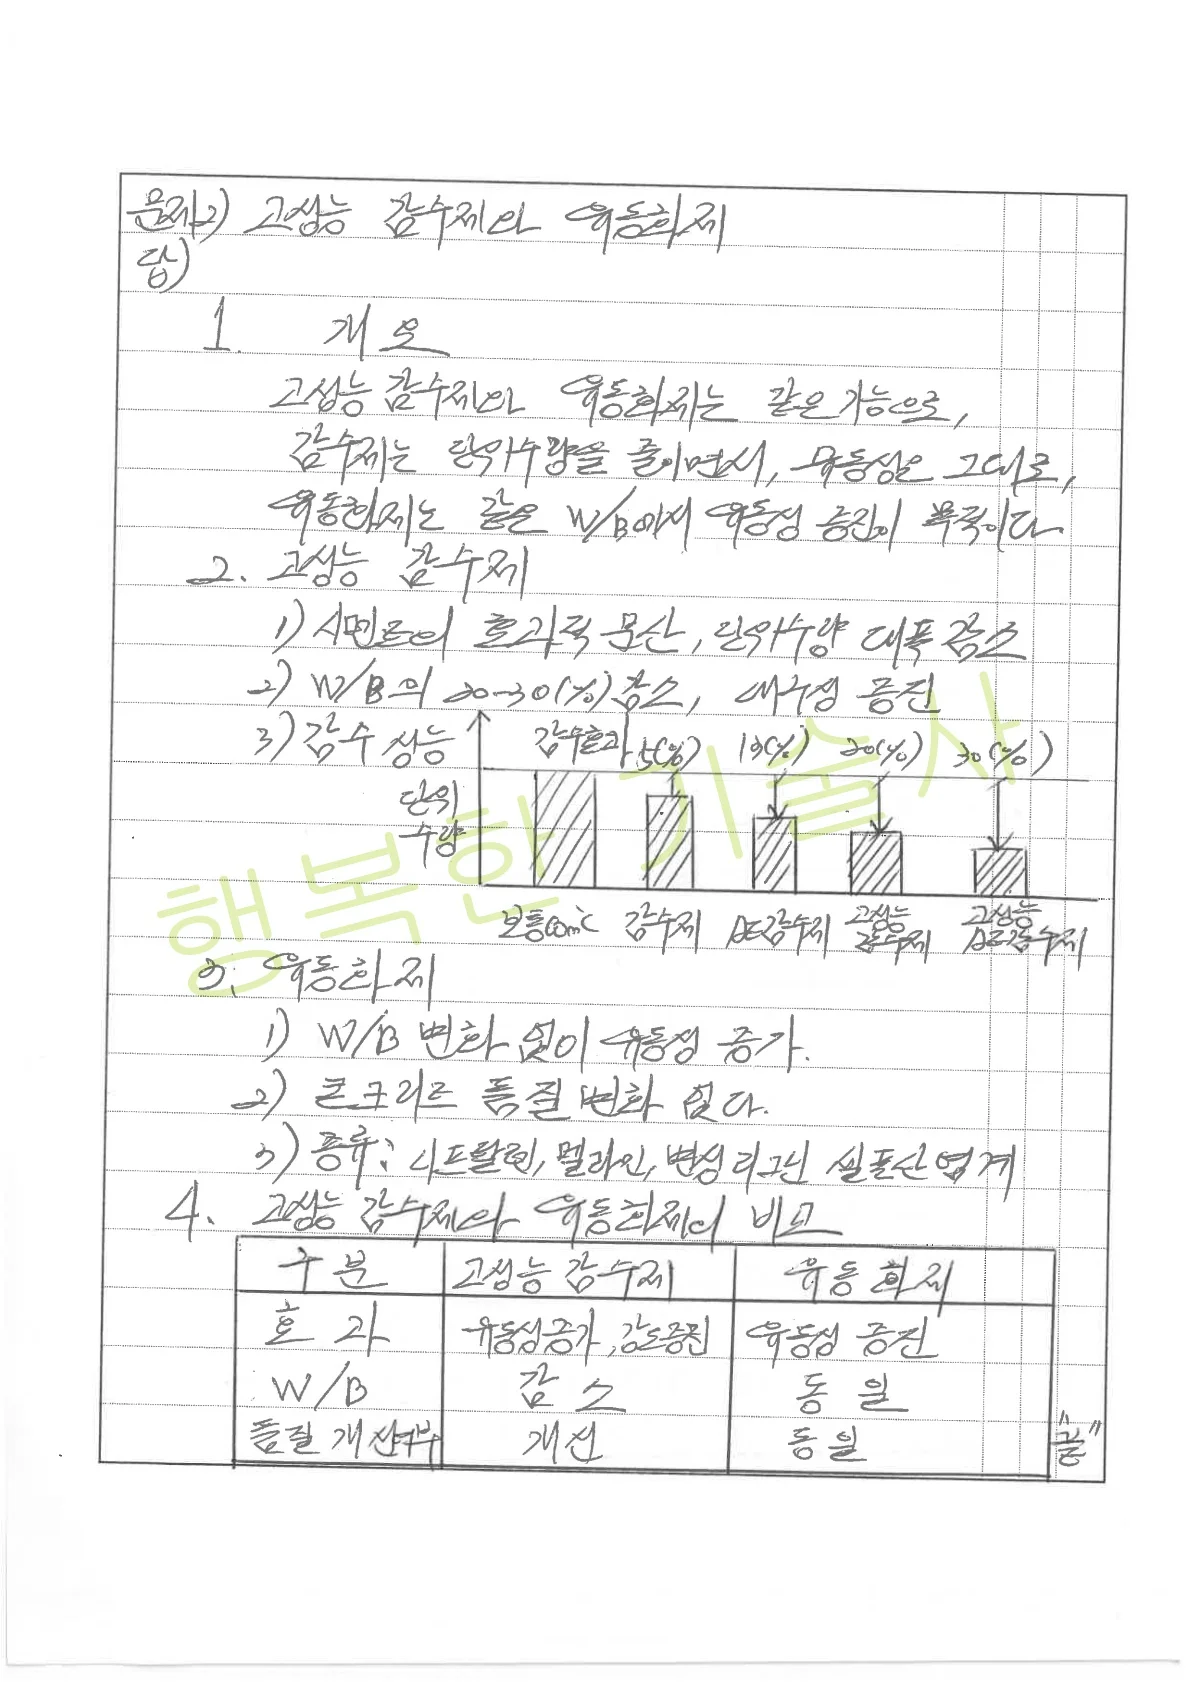 문제2) 고성능 감수제와 유동화제
답)
1. 개요
고성능 감수제와 유동화제는 같은 기능으로,
감수제는 단위수량을 줄이면서, 유동성은 그대로,
유동화제는 같은 W/B에서 유동성 증진이 목적이다
2. 고성능 감수제
1) 시멘트의 효과적 분산, 단위수량 대폭 감소
2) W/B의 20-30(%) 감소, 내구성 증진
3) 감수 성능
감수효과 5(%) 13(%) 20(%) 30(%)
단위
수량
보통con'c 감수제 AE감수제 고성능 감수제 고성능 AE감수제
3. 유동화제
1) W/B 변화 없이 유동성 증가.
2) 콘크리트 품질 변화 없다.
3) 종류: 나프탈린, 멜라민, 변성 리그닌 설폰산염계
4. 고성능 감수제와 유동화제의 비교
구분 고성능 감수제 유동화제
효과 유동성증가, 강도증진 유동성 증진
W/B 감소 동일
품질 개선여부 개선 동일
"끝"
행복한 기술사